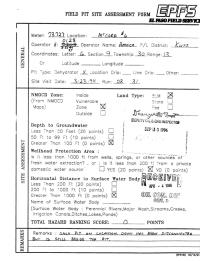 FIELD PIT SITE ASSESSMENT FORM
EL PASO FIELD SERVICES
GENERAL
Meter: 73727 Location: McCord #6
Operator #: 0128 Operator Name: Amoco P/L District: Kutz
Coordinates: Letter: Section 9 Township: 30 Range: 13
Or Latitude Longitude
Pit Type: Dehydrator X Location Drip: Line Drip: Other:
Site Visit Date: 3.23.94 Run: 02 31
SITE ASSESSMENT
NMOCD Zone: Inside
(From NMOCD Vulnerable
Maps) Zone X
Outside
Land Type: BLM X
State
Fee
Indian
DEPUTY OIL & GAS INSPECTOR
SEP 03 1996
Depth to Groundwater
Less Than 50 Feet (20 points)
50 Ft to 99 Ft (10 points)
Greater Than 100 Ft (0 points) X
Wellhead Protection Area :
Is it less than 1000 ft from wells, springs, or other sources of
fresh water extraction? , or ; Is it less than 200 ft from a private
domestic water source? YES (20 points) X NO (0 points)
Horizontal Distance to Surface Water Body
Less Than 200 Ft (20 points)
200 Ft to 1000 Ft (10 points)
Greater Than 1000 Ft (0 points) X
Name of Surface Water Body
(Surface Water Body : Perennial Rivers,Major Wash,Streams,Creeks,
Irrigation Canals,Ditches,Lakes,Ponds)
TOTAL HAZARD RANKING SCORE: 0 POINTS
REMARKS
Remarks : Only Pit on Location. Dehy has been Disconnected
But is still beside the pit.